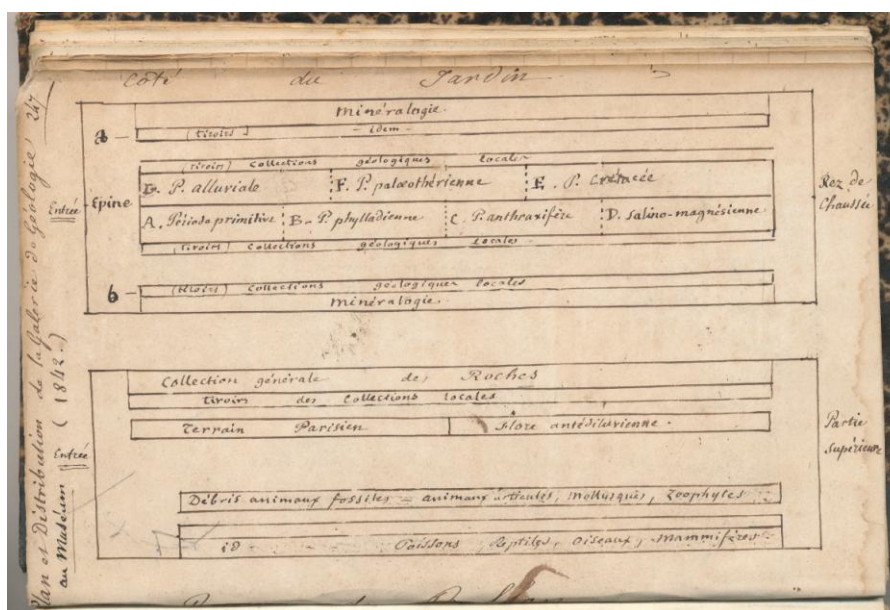 247
Plan et Distribution de la Galerie de Géologie
au Muséum (1842.)
Côté du Jardin
Minéralogie.
a — (tiroirs) - Idem -
(tiroirs) Collections géologiques locales
G. P. alluviale F. P. palæothérienne E. P. Crétacée
Entrée Epine
A. Période primitive B. P. phylladienne C. P. anthraxifère D. Salino-magnésienne
Rez de
Chaussée
(tiroirs) Collections géologiques locales
b — (tiroirs) Collections géologiques locales
Minéralogie.
Collection générale des Roches
tiroirs des Collections locales
Terrain Parisien Flore antédiluvienne.
Entrée
Partie
Supérieure
Débris animaux fossiles = animaux articulés, Mollusques, Zoophytes
id Poissons, Reptiles, Oiseaux, Mammifères